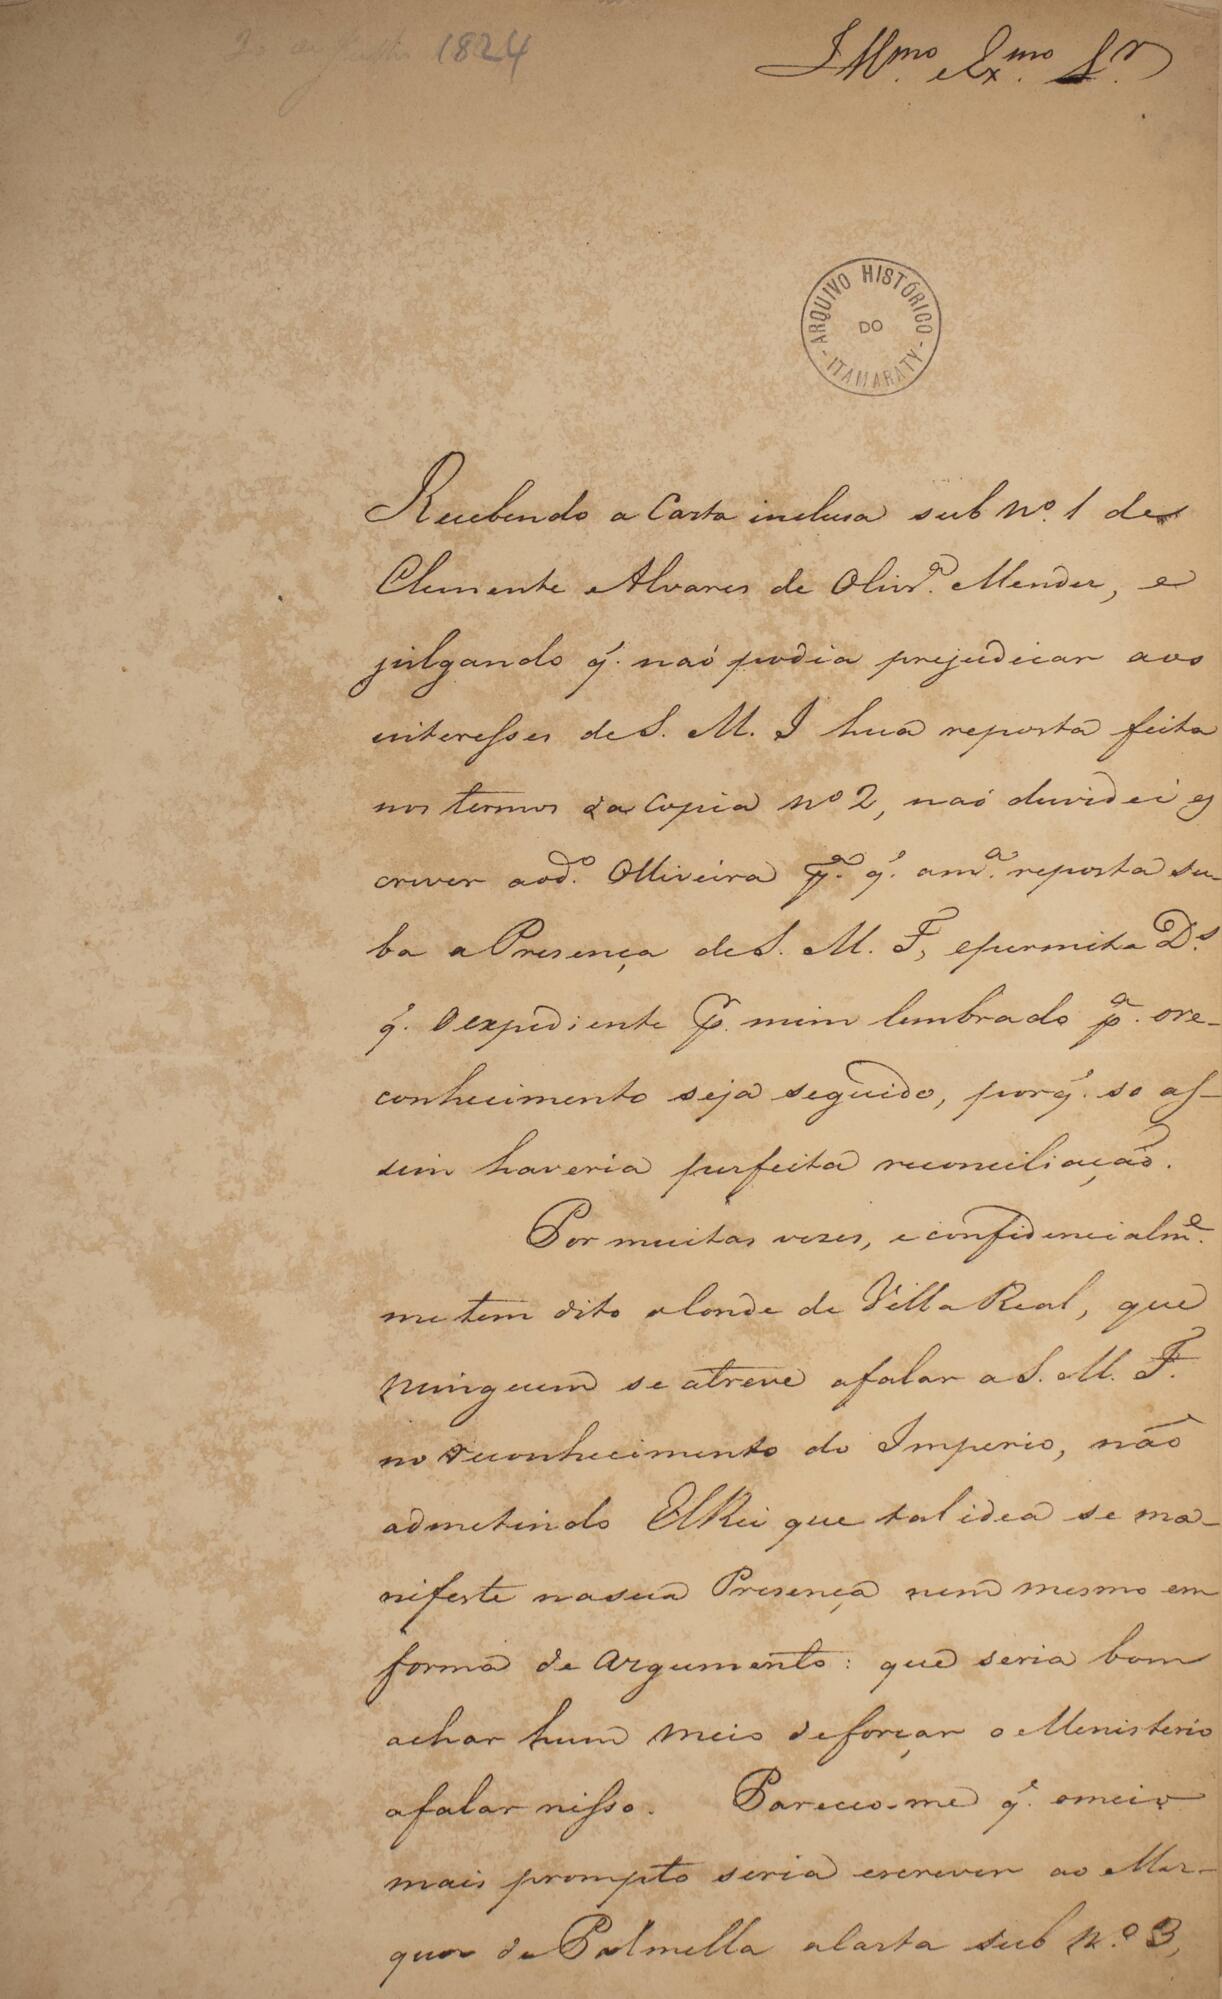 1824
Illmo. e Exmo. Sr.
ARQUIVO HISTÓRICO
DO
- ITAMARATY -
Recebendo a Carta inclusa sub No. 1 de
Clemente Alvares de Olivra. Mendes, e
julgando q'. naõ podia prejudicar aos
interesses de S. M. I hua reposta feita
nos termos da Copia No 2, naõ duvidei es
crever ao do. Olliveira pa. q'. a ma. reposta su-
ba a Presença de S. M. F, e permita Ds.
q'. o expediente pr. mim lembrado pa. o re-
conhecimento seja seguido, porq'. so as-
sim haveria perfeita reconciliação.
Por muitas vezes, e confidencialme.
me tem dito o Conde de Villa Real, que
ninguem se atreve a falar a S. M. F.
no reconhecimento do Imperio, não
admetindo ElRei que tal idea se ma-
nifeste na sua Presença nem mesmo em
forma de argumento: que seria bom
achar hum meio de forçar o Menisterio
a falar nisso. Pareceo-me q'. o meio
mais prompto seria escrever ao Mar-
quez de Palmella a Carta sub N.o 3,